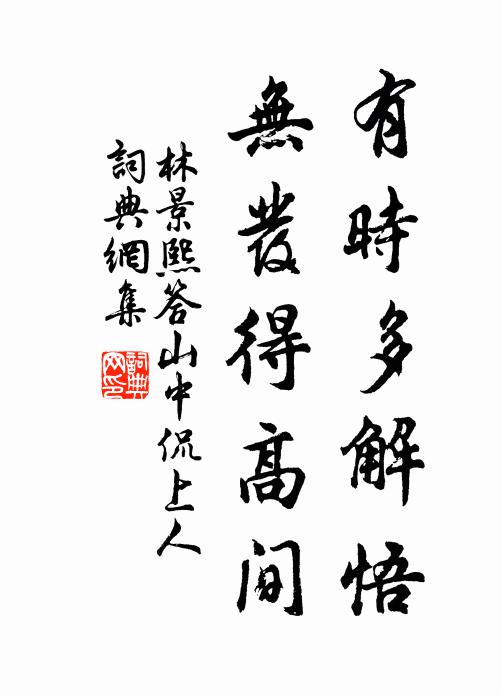 有時多解悟
無發得高間
林景熙答山中侃上人
詞典網集
詞典
网印